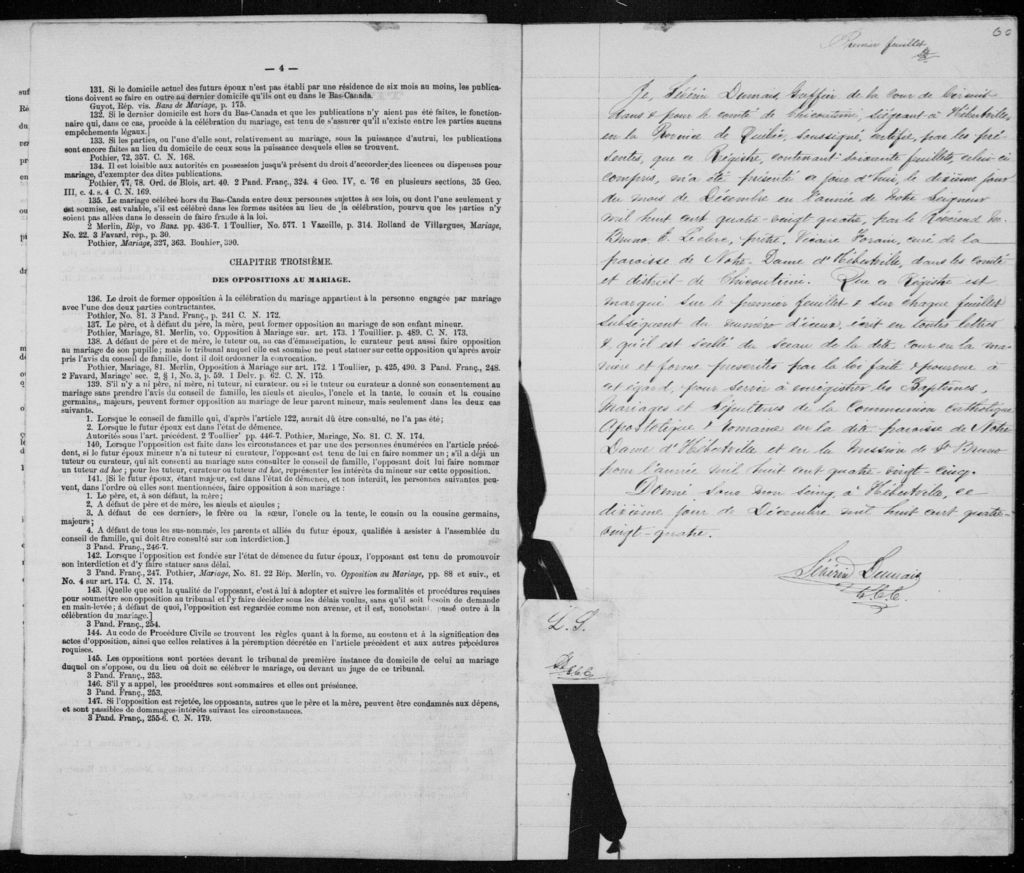 — 4 —
131. Si le domicile actuel des futurs époux n'est pas établi par une résidence de six mois au moins, les publica-
tions doivent se faire en outre au dernier domicile qu'ils ont eu dans le Bas-Canada.
Guyot, Rép. vis. Bans de Mariage, p. 175.
132. Si le dernier domicile est hors du Bas-Canada et que les publications n'y aient pas été faites, le fonction-
naire qui, dans ce cas, procède à la célébration du mariage, est tenu de s'assurer qu'il n'existe entre les parties aucuns
empêchements légaux.]
133. Si les parties, ou l'une d'elle sont, relativement au mariage, sous la puissance d'autrui, les publications
sont encore faites au lieu du domicile de ceux sous la puissance desquels elles se trouvent.
Pothier, 72, 357. C. N. 168.
134. Il est loisible aux autorités en possession jusqu'à présent du droit d'accorder des licences ou dispenses pour
mariage, d'exempter des dites publications.
Pothier, 77, 78. Ord. de Blois, art. 40. 2 Pand. Franç., 324. 4 Geo. IV, c. 76 en plusieurs sections, 35 Geo.
III, c. 4. s. 4 C. N. 169.
135. Le mariage célébré hors du Bas-Canda entre deux personnes sujettes à ses lois, ou dont l'une seulement y
est soumise, est valable, s'il est célébré dans les formes usitées au lieu de la célébration, pourvu que les parties n'y
soient pas allées dans le dessein de faire fraude à la loi.
2 Merlin, Rép, vo Bans. pp. 436-7. 1 Toullier, No. 577. 1 Vazeille, p. 314. Rolland de Villargues, Mariage,
No. 22. 3 Favard, rép., p. 30.
Pothier, Mariage, 327, 363. Bouhier, 390.
CHAPITRE TROISIÈME.
DES OPPOSITIONS AU MARIAGE.
136. Le droit de former opposition à la célébration du mariage appartient à la personne engagée par mariage
avec l'une des deux parties contractantes.
Pothier, No. 81. 3 Pand. Franç., p. 241 C. N. 172.
137. Le père, et à défaut du père, la mère, peut former opposition au mariage de son enfant mineur.
Pothier, Mariage, 81. Merlin, vo. Opposition à Mariage sur. art. 173. 1 Touillier. p. 489. C. N. 173.
138. A défaut de père et de mère, le tuteur ou, au cas d'émancipation, le curateur peut aussi faire opposition
au mariage de son pupille; mais le tribunal auquel elle est soumise ne peut statuer sur cette opposition qu'après avoir
pris l'avis du conseil de famille, dont il doit ordonner la convocation.
Pothier, Mariage, 81. Merlin, Opposition à Mariage sur art. 172. 1 Toullier, p. 425, 490. 3 Pand. Franç., 248.
2 Favard, Mariage' sec. 2, § 1, No. 3, p. 59. 1 Delv. p. 62. C. N. 175.
139. S'il n'y a ni père, ni mère, ni tuteur, ni curateur. ou si le tuteur ou curateur a donné son consentement au
mariage sans prendre l'avis du conseil de famille, les aïeuls et aïeules, l'oncle et la tante, le cousin et la cousine
germains, majeurs, peuvent former opposition au mariage de leur parent mineur, mais seulement dans les deux cas
suivants.
1. Lorsque le conseil de famille qui, d'après l'article 122, aurait dû être consulté, ne l'a pas été;
2. Lorsque le futur époux est dans l'état de démence.
Autorités sous l'art. précédent. 2 Toullier' pp. 446-7. Pothier, Mariage, No. 81. C. N. 174.
140. Lorsque l'opposition est faite dans les circonstances et par une des personnes énumérées en l'article précé-
dent, si le futur époux mineur n'a ni tuteur ni curateur, l'opposant est tenu de lui en faire nommer un; s'il a déjà un
tuteur ou curateur, qui ait consenti au mariage sans consulter le conseil de famille, l'opposant doit lui faire nommer
un tuteur ad hoc; pour les tuteur, curateur ou tuteur ad hoc, représenter les intérêts du mineur sur cette opposition.
141. [Si le futur époux, étant majeur, est dans l'état de démence, et non interdit, les personnes suivantes peu-
vent, dans l'ordre où elles sont mentionnées, faire opposition à son mariage :
1. Le père, et, à son défaut, la mère;
2. A défaut de père et de mère, les aïeuls et aïeules;
3. A défaut de ces derniers, le frère ou la sœur, l'oncle ou la tente, le cousin ou la cousine germains,
majeurs;
4. A défaut de tous les sus-nommés, les parents et alliés du futur époux, qualifiés à assister à l'assemblée du
conseil de famille, qui doit être consulté sur son interdiction.]
3 Pand. Franç., 246-7.
142. Lorsque l'opposition est fondée sur l'état de démence du futur époux, l'opposant est tenu de promouvoir
son interdiction et d'y faire statuer sans délai.
3 Pand. Franç., 247. Pothier, Mariage, No. 81. 22 Rép. Merlin, vo. Opposition au Mariage, pp. 88 et suiv., et
No. 4 sur art. 174. C. N. 174.
143. [Quelle que soit la qualité de l'opposant, c'est à lui à adopter et suivre les formalités et procédures requises
pour soumettre son opposition au tribunal et l'y faire décider sous les délais voulus, sans qu'il soit besoin de demande
en main-levée; à défaut de quoi, l'opposition est regardée comme non avenue, et il est, nonobstant, passé outre à la
célébration du mariage.]
3 Pand. Franç., 254.
144. Au code de Procédure Civile se trouvent les règles quant à la forme, au contenu et à la signification des
actes d'opposition, ainsi que celles relatives à la péremption décrétée en l'article précédent et aux autres procédures
requises.
145. Les oppositions sont portées devant le tribunal de première instance du domicile de celui au mariage
duquel on s'oppose, ou du lieu où doit se célébrer le mariage, ou devant un juge de ce tribunal.
3 Pand. Franç., 253.
146. S'il y a appel, les procédures sont sommaires et elles ont préséance.
3 Pand. Franç., 253.
147. Si l'opposition est rejetée, les opposants, autres que le père et la mère, peuvent être condamnés aux dépens,
et sont passibles de dommages-intérêts suivant les circonstances.
3 Pand. Franç., 255-6. C. N. 179.
60
Premier feuillet
Je, Sévérin Dumais, Greffier de la Cour de Circuit
dans & pour le comté de Chicoutimi, siégeant à Hébertville,
en la Province de Québec, soussigné, certifie, par les pré-
sentes, que ce Régistre, contenant soixante feuillets, celui-ci
compris, m'a été présenté ce jour d'hui, le dixième jour
du mois de Décembre en l'année de Notre Seigneur
mil huit cent quatre-vingt quatre, par le Révérend M.
Bruno E. Leclerc, prêtre, Vicaire Forain, curé de la
paroisse de Notre-Dame d'Hébertville, dans les comté
et district de Chicoutimi. Que ce Régistre est
marqué sur le premier feuillet & sur chaque feuillet
subséquent du numéro d'iceux, écrit en toutes lettres
& qu'il est scellé du sceau de la dite Cour en la ma-
nière et forme prescrites par la loi faite & pourvue à
cet égard, pour servir à enrégistrer les Baptêmes,
Mariages et Sépultures de la Communion Catholique
Apostolique & Romaine en la dite paroisse de Notre
Dame d'Hébertville et en la mission de St Bruno
pour l'année mil huit cent quatre-vingt-cinq.
Donné sous mon seing, à Hébertville, ce
dixième jour de Décembre mil huit cent quatre-
vingt-quatre.
Sévérin Dumais
G.C.C.
L. S.
G.C.C.